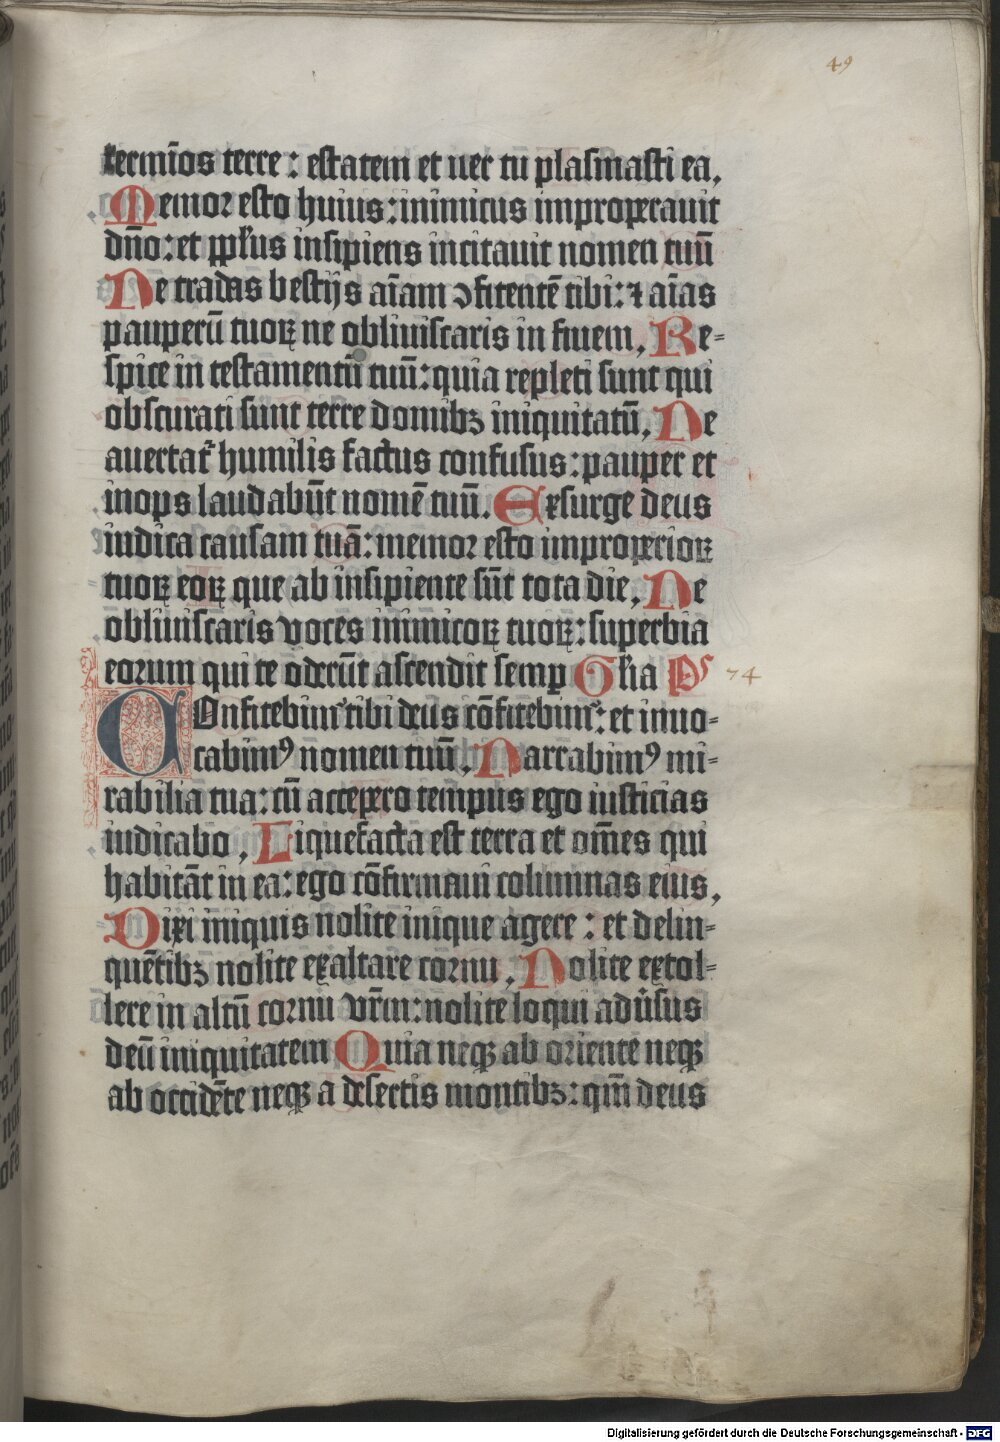 49
termīos terre : estatem et ver tu plasmasti ea.
Memor esto huius : inimicus improperauit
dn̄o : et pplu̅s insipiens incitauit nomen tuū
Ne tradas bestijs aīam ↄfitentē tibi : ⁊ aīas
pauperū tuoꝝ ne obliuiscaris in finem. Re-
spice in testamentū tuū : quia repleti sunt qui
obscurati sunt terre domibꝫ iniquitatū. Ne
auertat᷑ humilis factus confusus : pauper et
inops laudabūt nomē tuū. Exsurge deus
iudica causam tuā : memor esto improperioꝝ
tuoꝝ eoꝝ que ab insipiente sūt tota die. Ne
obliuiscaris voces inimicoꝝ tuoꝝ : superbia
eorum qui te oderūt ascendit semꝑ Gl̄ia Ps 74
COnfitebimꝰ tibi deus cōfitebimꝰ : et inuo-
cabimꝰ nomen tuū. Narrabimꝰ mi-
rabilia tua : cū accepero tempus ego iusticias
iudicabo. Liquefacta est terra et om̄es qui
habitāt in ea : ego cōfirmaui columnas eius.
Dixi iniquis nolite inique agere : et delin-
quētibꝫ nolite exaltare cornu. Nolite extol-
lere in altū cornu vr̄m : nolite loqui adūsus
deū iniquitatem Quia neqꝫ ab oriente neqꝫ
ab occidēte neqꝫ a desertis montibꝫ : qm̄ deus
Digitalisierung gefördert durch die Deutsche Forschungsgemeinschaft - DFG